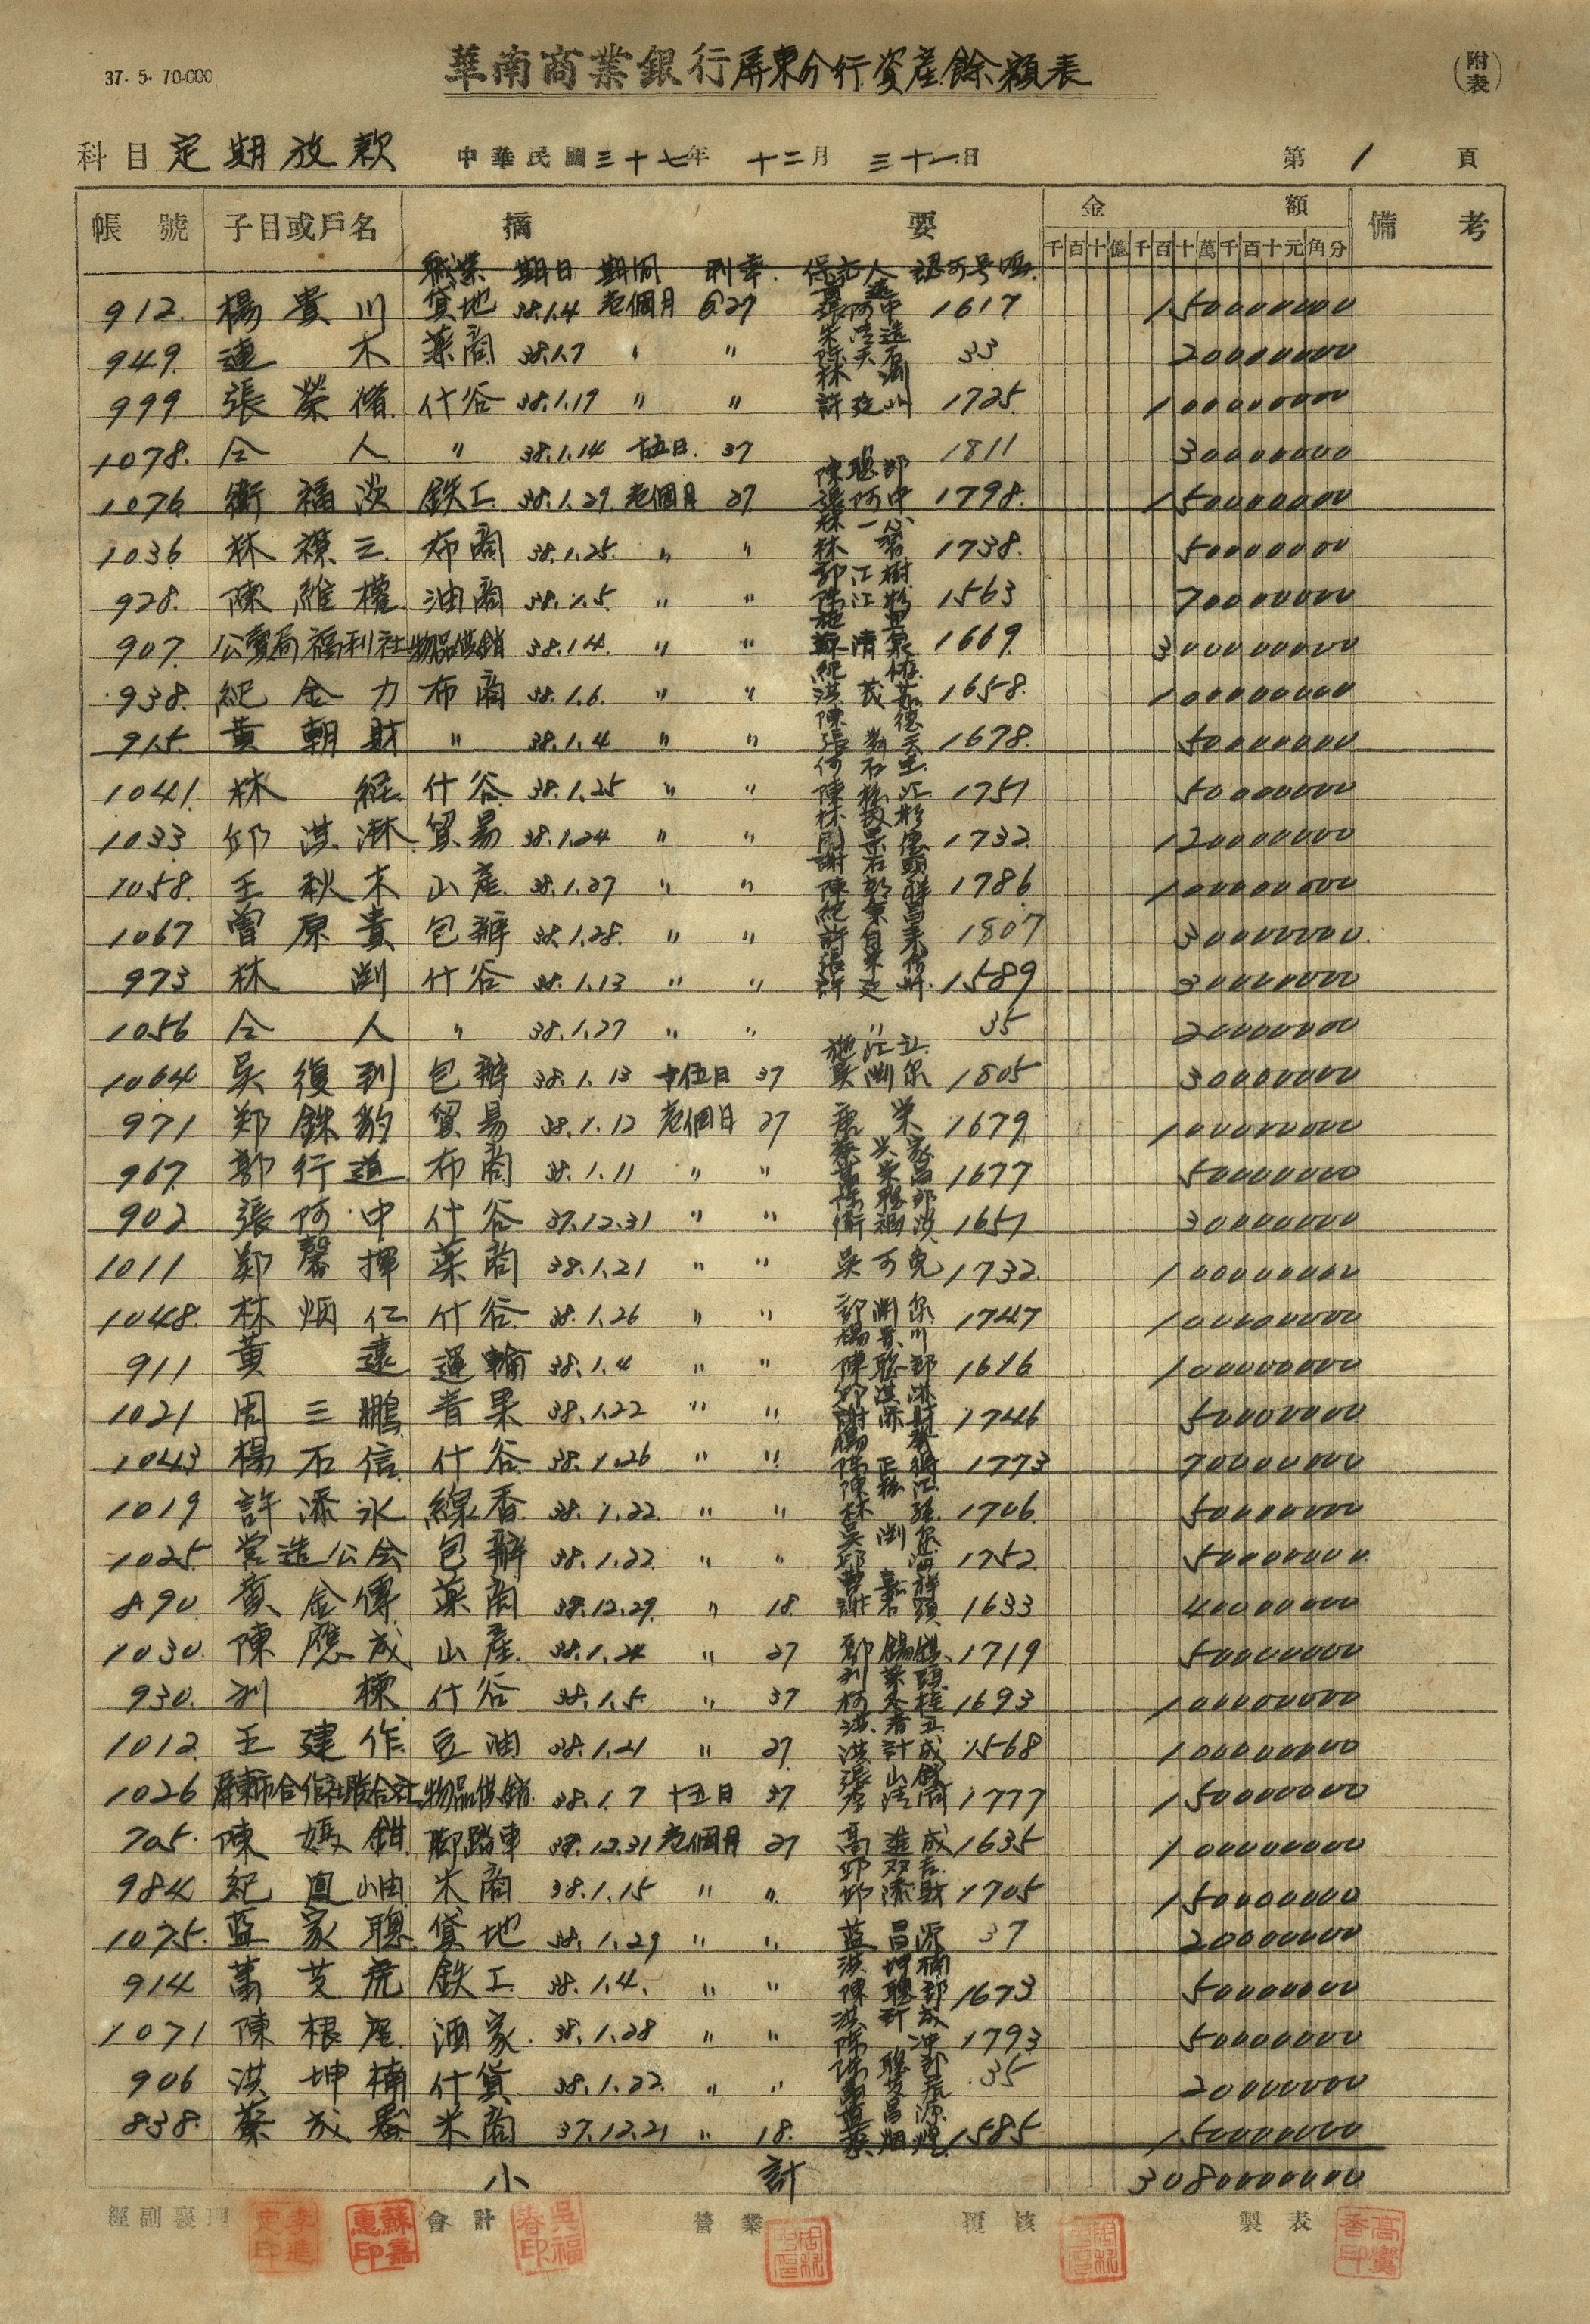 37. 5. 70.000
華南商業銀行屏東分行資產餘額表
(附表)
科目 定期放款 中華民國三十七年 十二月 三十一日 第 1 頁
帳號 子目或戶名 摘要 金額 備考
千百十億千百十萬千百十元角分
職業 期日 期間 利率 保証人 認可号碼
912. 楊貴川 貸地 38.1.4 壱個月 @27 張阿中 1617 150000000
949. 連木 藥商 38.1.7 〃 〃 陳天石 33 20000000
999 張榮脩 什谷 38.1.19 〃 〃 林渕 許廷州 1725 100000000
1078. 仝人 〃 38.1.14 十五日 37 〃 1811 30000000
1076 衛福汝 鉄工 38.1.29. 壱個月 27 陳聰郎 張阿中 1798. 150000000
1036 林禎三 布商 38.1.25. 〃 〃 1738. 50000000
928. 陳維權 油商 38.1.5. 〃 〃 郭江樹 1563 70000000
907. 公賣局福利社 物品供銷 38.1.4. 〃 〃 蘇清泉 1669. 300000000
938. 紀金力 布商 38.1.6. 〃 〃 洪茂 1658. 100000000
915. 黃朝財 〃 38.1.4 〃 〃 陳德 1678. 50000000
1041. 林經 什谷 38.1.25 〃 〃 陳松江 1751 50000000
1033 邱洪淋 貿易 38.1.24 〃 〃 1732. 120000000
1058. 王秋木 山產 38.1.27 〃 〃 謝石頭 1786 100000000
1067 曾原貴 包辦 38.1.28. 〃 〃 1807 30000000
973 林渕 什谷 38.1.13 〃 〃 許廷州 1589 30000000
1056 仝人 〃 38.1.27 〃 〃 〃 35 20000000
1064 吳復到 包辦 38.1.13 十伍日 37 施江立 吳渕泉 1805 30000000
971 鄭銖豹 貿易 38.1.12 壱個月 27 1679 100000000
967. 郭行道 布商 38.1.11 〃 〃 蔡興家 1677 50000000
902 張阿中 什谷 37.12.31 〃 〃 陳聰郎 衛福汝 1651 30000000
1011 鄭馨揮 藥商 38.1.21 〃 〃 吳可免 1732. 100000000
1048. 林炳仁 什谷 38.1.26 〃 〃 1747 100000000
911 黃遠 運輸 38.1.4 〃 〃 楊貴川 陳聰郎 1616 100000000
1021 周三鵬 青果 38.1.22 〃 〃 邱洪淋 謝添財 1746 50000000
1043 楊石信 什谷 38.1.26 〃 〃 1773 70000000
1019 許添永 線香 38.1.22. 〃 〃 陳松江 林經 1706. 50000000
1025 営造公会 包辦 38.1.22 〃 〃 吳渕泉 1752 50000000
890. 黃金傳 藥商 37.12.29. 〃 18. 謝石頭 1633 40000000
1030. 陳應成 山產 38.1.24 〃 27 1719 50000000
930. 刘棟 什谷 38.1.5 〃 37 1693 100000000
1012. 王建作 豆油 38.1.21 〃 27. 洪計成 1568 100000000
1026 屏東市合作社聯合社 物品供銷 38.1.7 十五日 37. 1777 150000000
705. 陳媽鉗 脚踏車 37.12.31 壱個月 27 高進成 1635 100000000
984 紀鳳岫 米商 38.1.15 〃 〃 邱添財 1705 150000000
1075. 藍家聰 貸地 38.1.29 〃 〃 藍昌源 37 20000000
914 萬芝虎 鉄工 38.1.4. 〃 〃 洪坤楠 陳聰郎 1673 50000000
1071 陳根產 酒家 38.1.28 〃 〃 洪計成 1793 50000000
906 洪坤楠 什貨 38.1.22. 〃 〃 陳聰郎 35 20000000
838. 蔡成器 米商 37.12.21 〃 18. 1585 150000000
小計 3080000000
經副襄理 會計 營業 覆核 製表
蘇嘉惠印
吳福春印